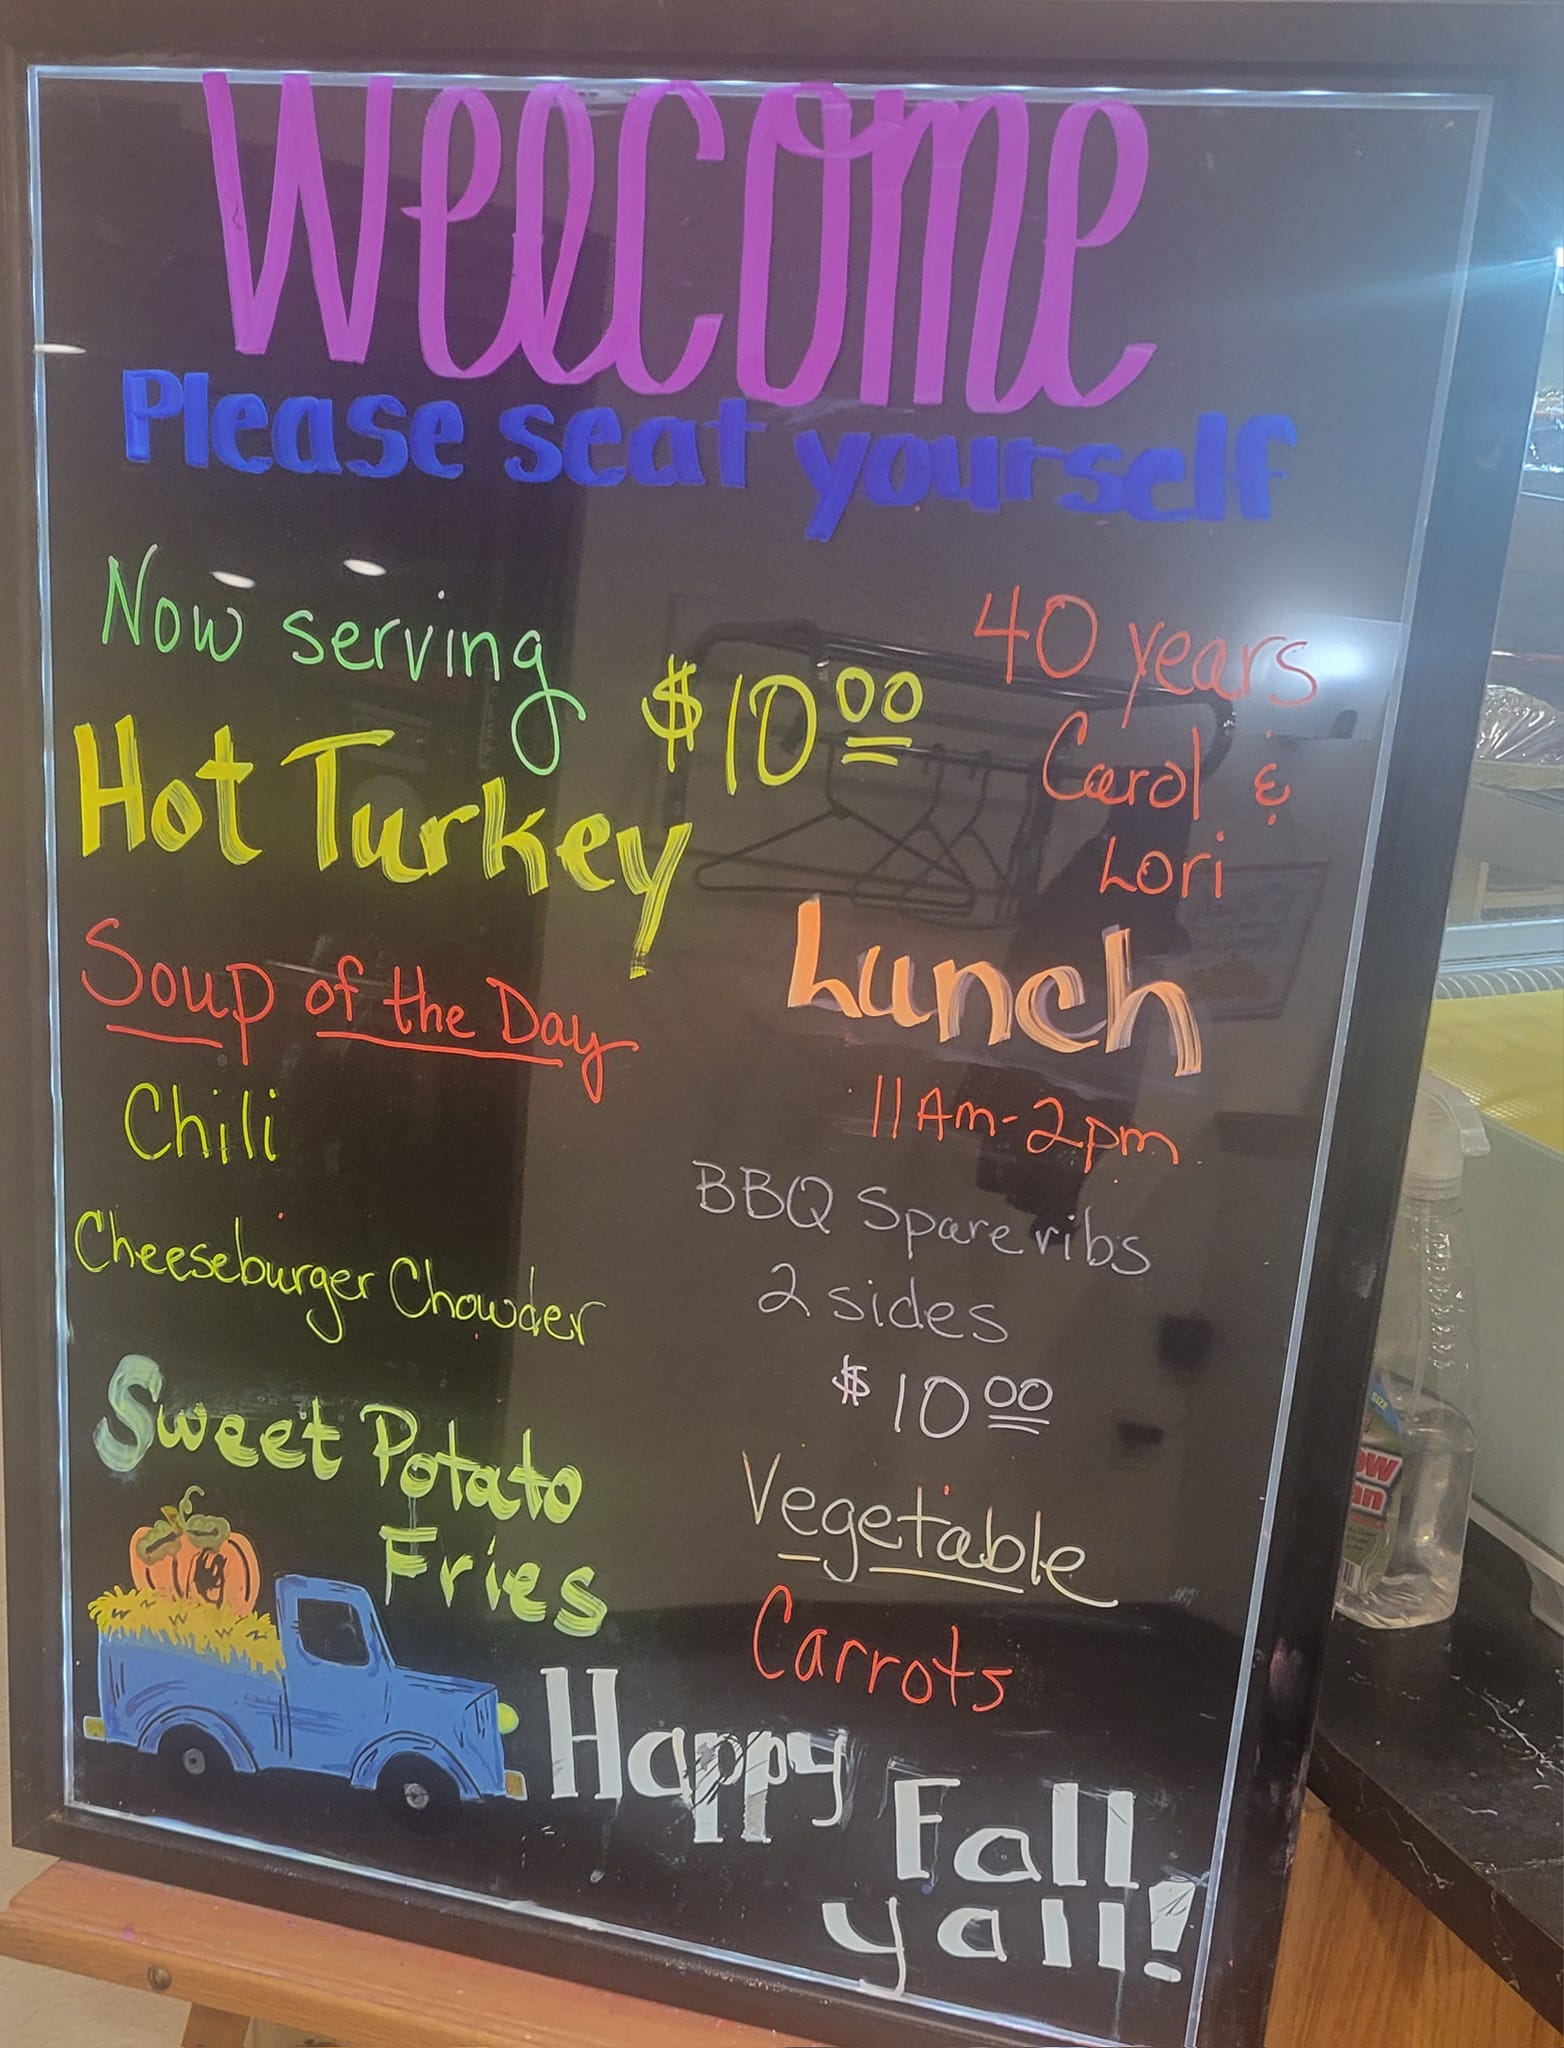 Welcome
Please seat yourself
Now serving
Hot Turkey
$10.00
40 years
Carol &
Lori
Soup of the Day
Chili
Cheeseburger Chowder
Sweet Potato
Fries
Lunch
11Am-2pm
BBQ Spareribs
2 sides
$10.00
Vegetable
Carrots
Happy
Fall
yall!
SIZE